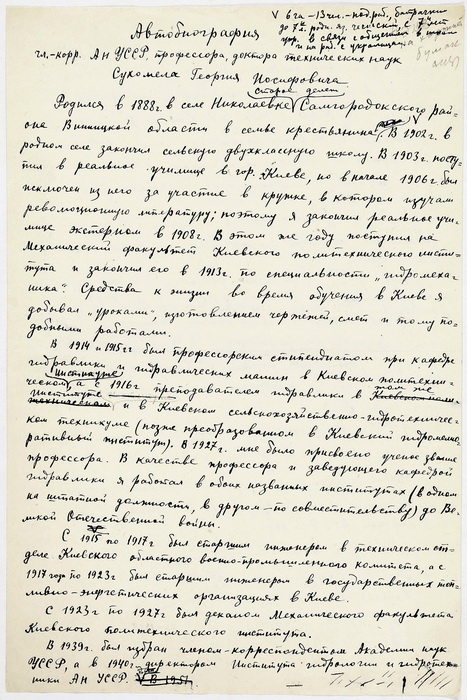 V 6 га – 13 чел. – под. раб., батрачки
до 7 л. родн. яз. чешский, с 7 лет
укр. в связи с общением в школе
и на раб. с украинцами
Автобиография
чл.-корр. АН УССР, профессора, доктора технических наук
Сухомела Георгия Иосифовича
старое деление
Родился в 1888 г. в селе Николаевке Самгородокского рай-
оне Винницкой области в семье крестьянина. V В 1902 г. в
родном селе закончил сельскую двухклассную школу. В 1903 г. посту-
пил в реальное училище в гор. Киеве, но в начале 1906 г. был
исключен из него за участие в кружке, в котором изучали
революционную литературу; поэтому я закончил реальное учи-
лище экстерном в 1908 г. В этом же году поступил на
Механический факультет Киевского политехнического инсти-
тута и закончил его в 1913 г. по специальности „гидромеха-
ника". Средства к жизни во время обучения в Киеве я
добывал „уроками", изготовлением чертежей, смет и тому по-
добными работами.
В 1914 и 1915 гг. был профессорским стипендиатом при кафедре
гидравлики и гидравлических машин в Киевском политехни-
ческом институте, а с 1916 г. преподавателем гидравлики в том же
институте и в Киевском сельскохозяйственно-гидротехничес-
ком техникуме (позже преобразованном в Киевский гидромелио-
ративный институт). В 1927 г. мне было присвоено ученое звание
профессора. В качестве профессора и заведующего кафедрой
гидравлики я работал в обоих названных институтах (в одном
на штатной должности, в другом – по совместительству) до Ве-
ликой Отечественной войны.
С 1915 по 1917 г. был старшим инженером в техническом от-
деле Киевского областного военно-промышленного комитета, а с
1917 года по 1923 г. был старшим инженером в государственных топ-
ливно-энергетических организациях в Киеве.
С 1923 г. по 1927 г. был деканом Механического факультета
Киевского политехнического института.
В 1939 г. был избран членом-корреспондентом Академии наук
УССР, а в 1940 г. директором Института гидрологии и гидротех-
ники АН УССР. V В 1951